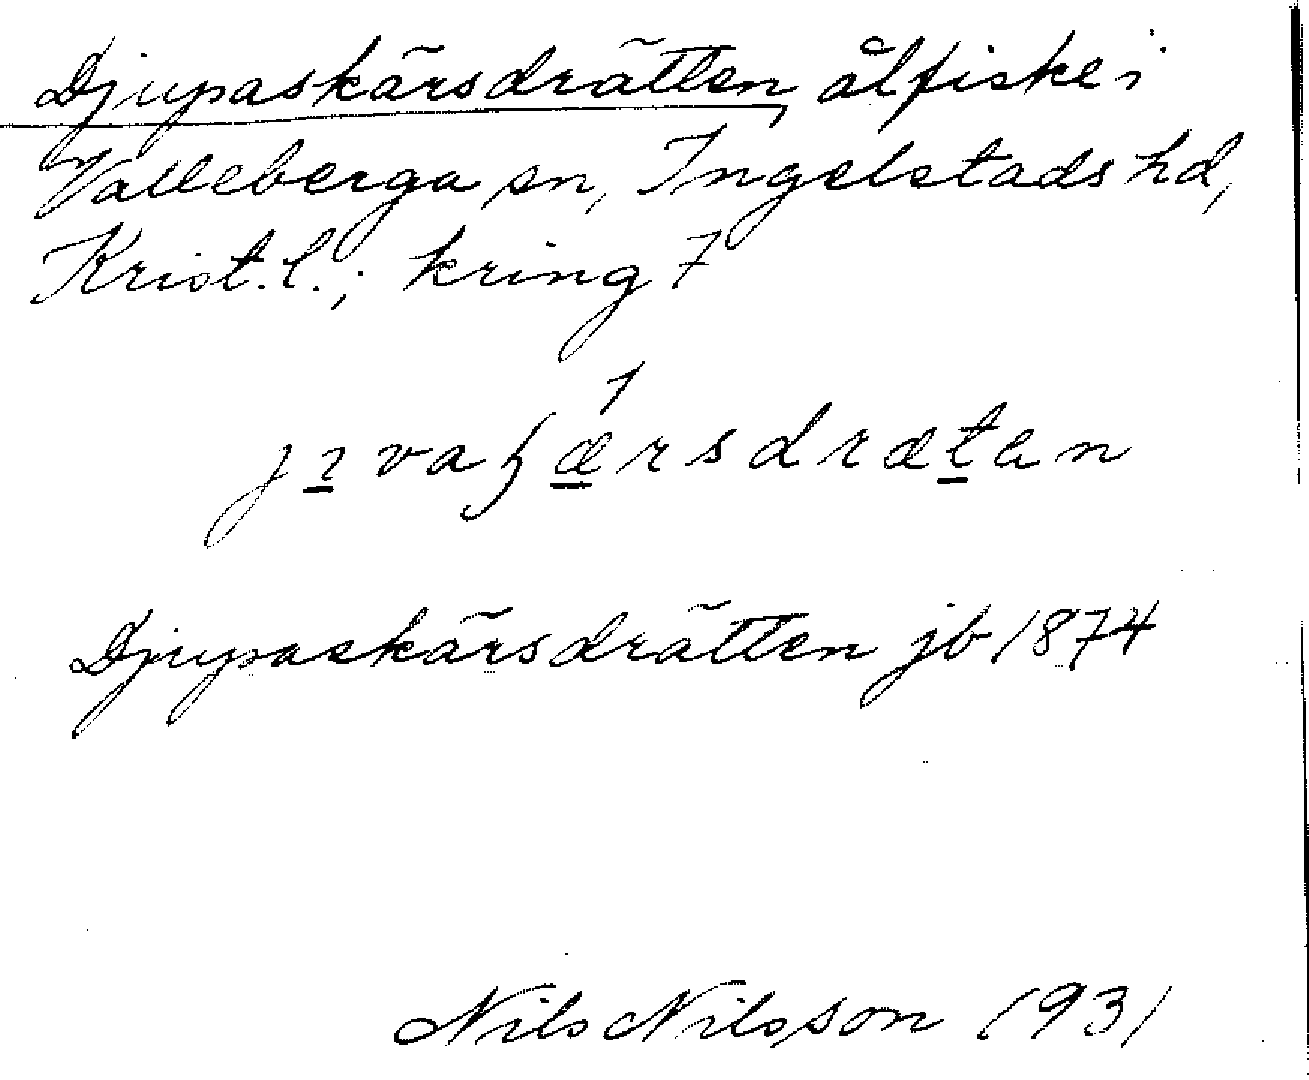 Djupaskärsdrätten, ålfiske i
Valleberga sn, Ingelstads hd,
Krist. l.; kring 7
Djupaskärsdrätten jb 1874
Nils Nilsson 1931